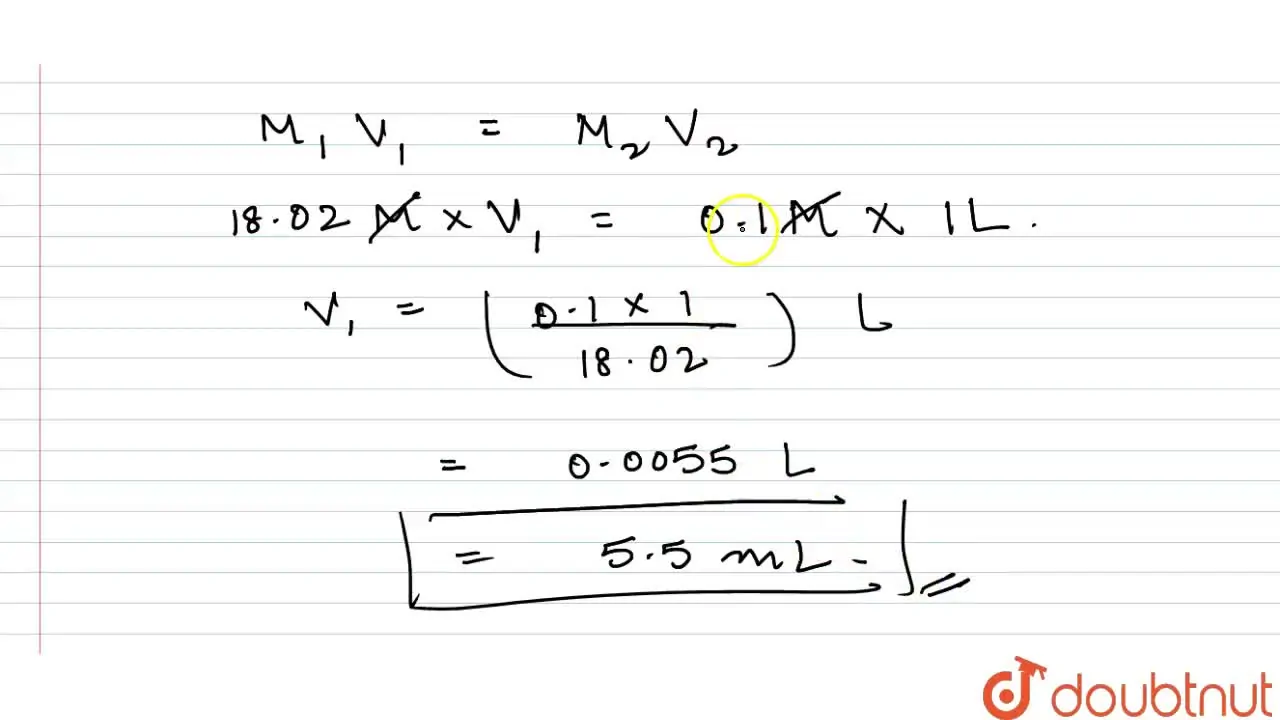 M₁ V₁ = M₂ V₂
18.02 M × V₁ = 0.1 M × 1L.
V₁ = (0.1 × 1 / 18.02) L
= 0.0055 L
= 5.5 mL
doubtnut